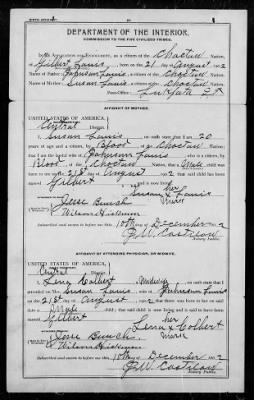 DEPARTMENT OF THE INTERIOR.
COMMISSION TO THE FIVE CIVILIZED TRIBES.
IN RE APPLICATION FOR ENROLLMENT, as a citizen of the Choctaw Nation,
of Gilbert born on the 21 day of August 2
Name of Father: Johnson a citizen of the Choctaw Nation.
Name of Mother: Susan a citizen of the Choctaw Nation.
Post-Office
AFFIDAVIT OF MOTHER.
UNITED STATES OF AMERICA,
Central District.
I, Susan on oath state that I am 20
years of age and a citizen, by Blood of the Choctaw Nation;
that I am the lawful wife of Johnson who is a citizen, by
Blood of the Choctaw Nation; that a Male child was
born to me on 21st day of August 2 that said child has been
named Gilbert
her
Susan x
mark
Jesse Bunch
Wilson
Subscribed and sworn to before me this 10th day of December 2
Notary Public.
AFFIDAVIT OF ATTENDING PHYSICIAN, OR MIDWIFE.
UNITED STATES OF AMERICA,
Central District.
I, Lena Colbert, a Midwife, on oath state that I
attended on Mrs. Susan wife of Johnson
on the 21st day of August 2 that there was born to her on said
date a Male child
named Gilbert
her
Lena x Colbert
mark
Jesse Bunch
Wilson
Subscribed and sworn to before me this 10th day of December 2
Notary Public.